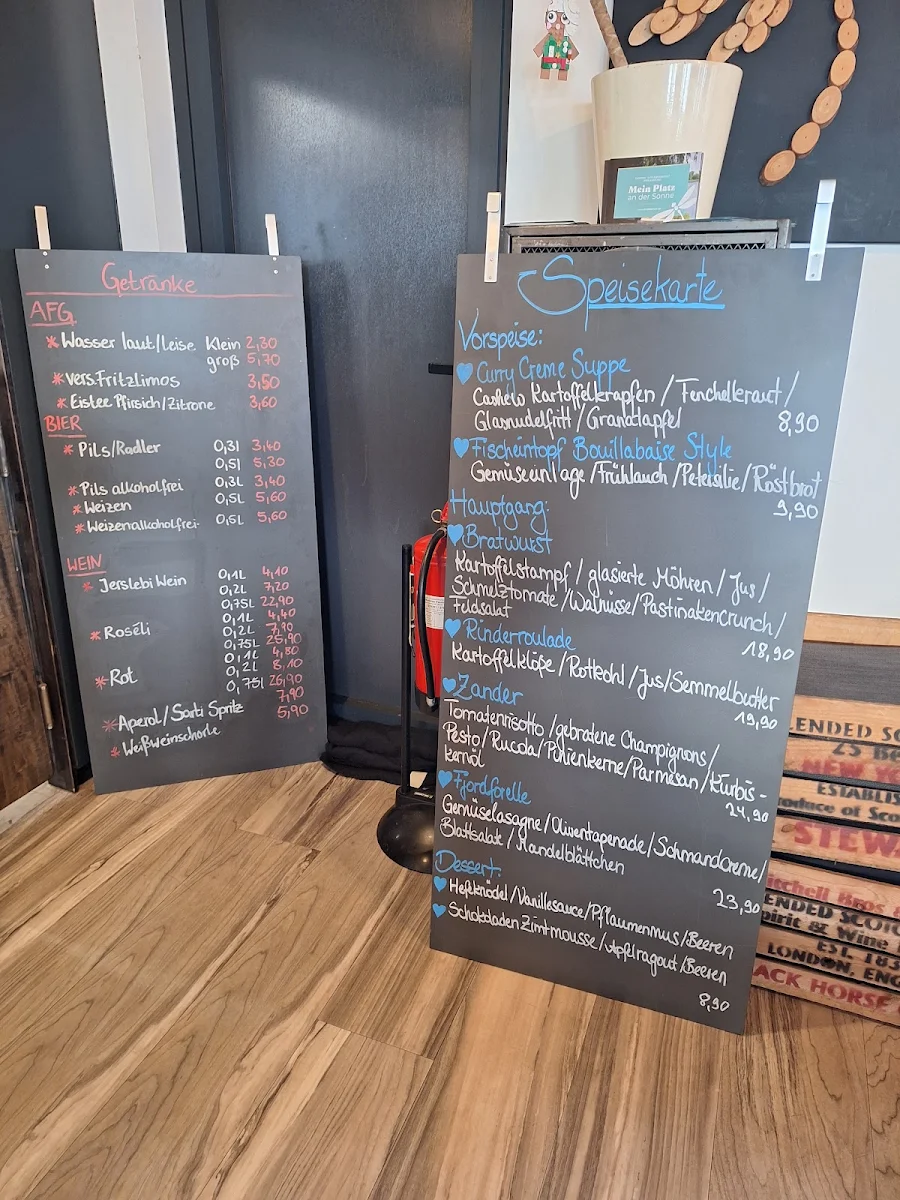 Getränke
AFG
* Wasser laut/Leise Klein 2,30
groß 5,70
* vers. Fritzlimos 3,50
* Eistee Pfirsich/Zitrone 3,60
BIER
* Pils/Radler 0,3l 3,40
0,5l 5,30
* Pils alkoholfrei 0,3L 3,40
* Weizen 0,5L 5,60
* Weizenalkoholfrei 0,5L 5,60
WEIN
* Jerslebi Wein 0,1L 4,10
0,2L 7,20
0,75L 22,90
* Roséli 0,1L 4,40
0,2L 7,90
0,75L 25,90
* Rot 0,1L 4,80
0,2L 8,10
0,75l 26,90
* Aperol/Sarti Spritz 7,90
* Weißweinschorle 5,90
Speisekarte
Vorspeise:
Curry Creme Suppe
Cashew Kartoffelkrapfen / Fenchelkraut /
Glasnudelfritt / Granatapfel 8,90
Fischeintopf Bouillabaise Style
Gemüseeinlage / Frühlauch / Petersilie / Röstbrot
9,90
Hauptgang:
Bratwurst
Kartoffelstampf / glasierte Möhren / Jus /
Schmelztomate / Walnüsse / Pastinakencrunch /
Feldsalat 18,90
Rinderroulade
Kartoffelklöße / Rotkohl / Jus / Semmelbutter
19,90
Zander
Tomatenrisotto / gebratene Champignons /
Pesto / Rucola / Pinienkerne / Parmesan / Kürbis-
kernöl 24,90
Fjordforelle
Gemüselasagne / Oliventapenade / Schmandcreme /
Blattsalate / Mandelblättchen
23,90
Dessert:
Hefeknödel / Vanillesauce / Pflaumenmus / Beeren
Schokoladen Zimtmousse / Apfelragout / Beeren
8,90
Mein Platz
an der Sonne
LENDED SC
25 Bo
NEW YO
ESTABLIS
oduce of Sco
STEWA
itchell Bros
ENDED SCOT
pirit & Wine
EST. 183
LONDON, ENG
ACK HORSE